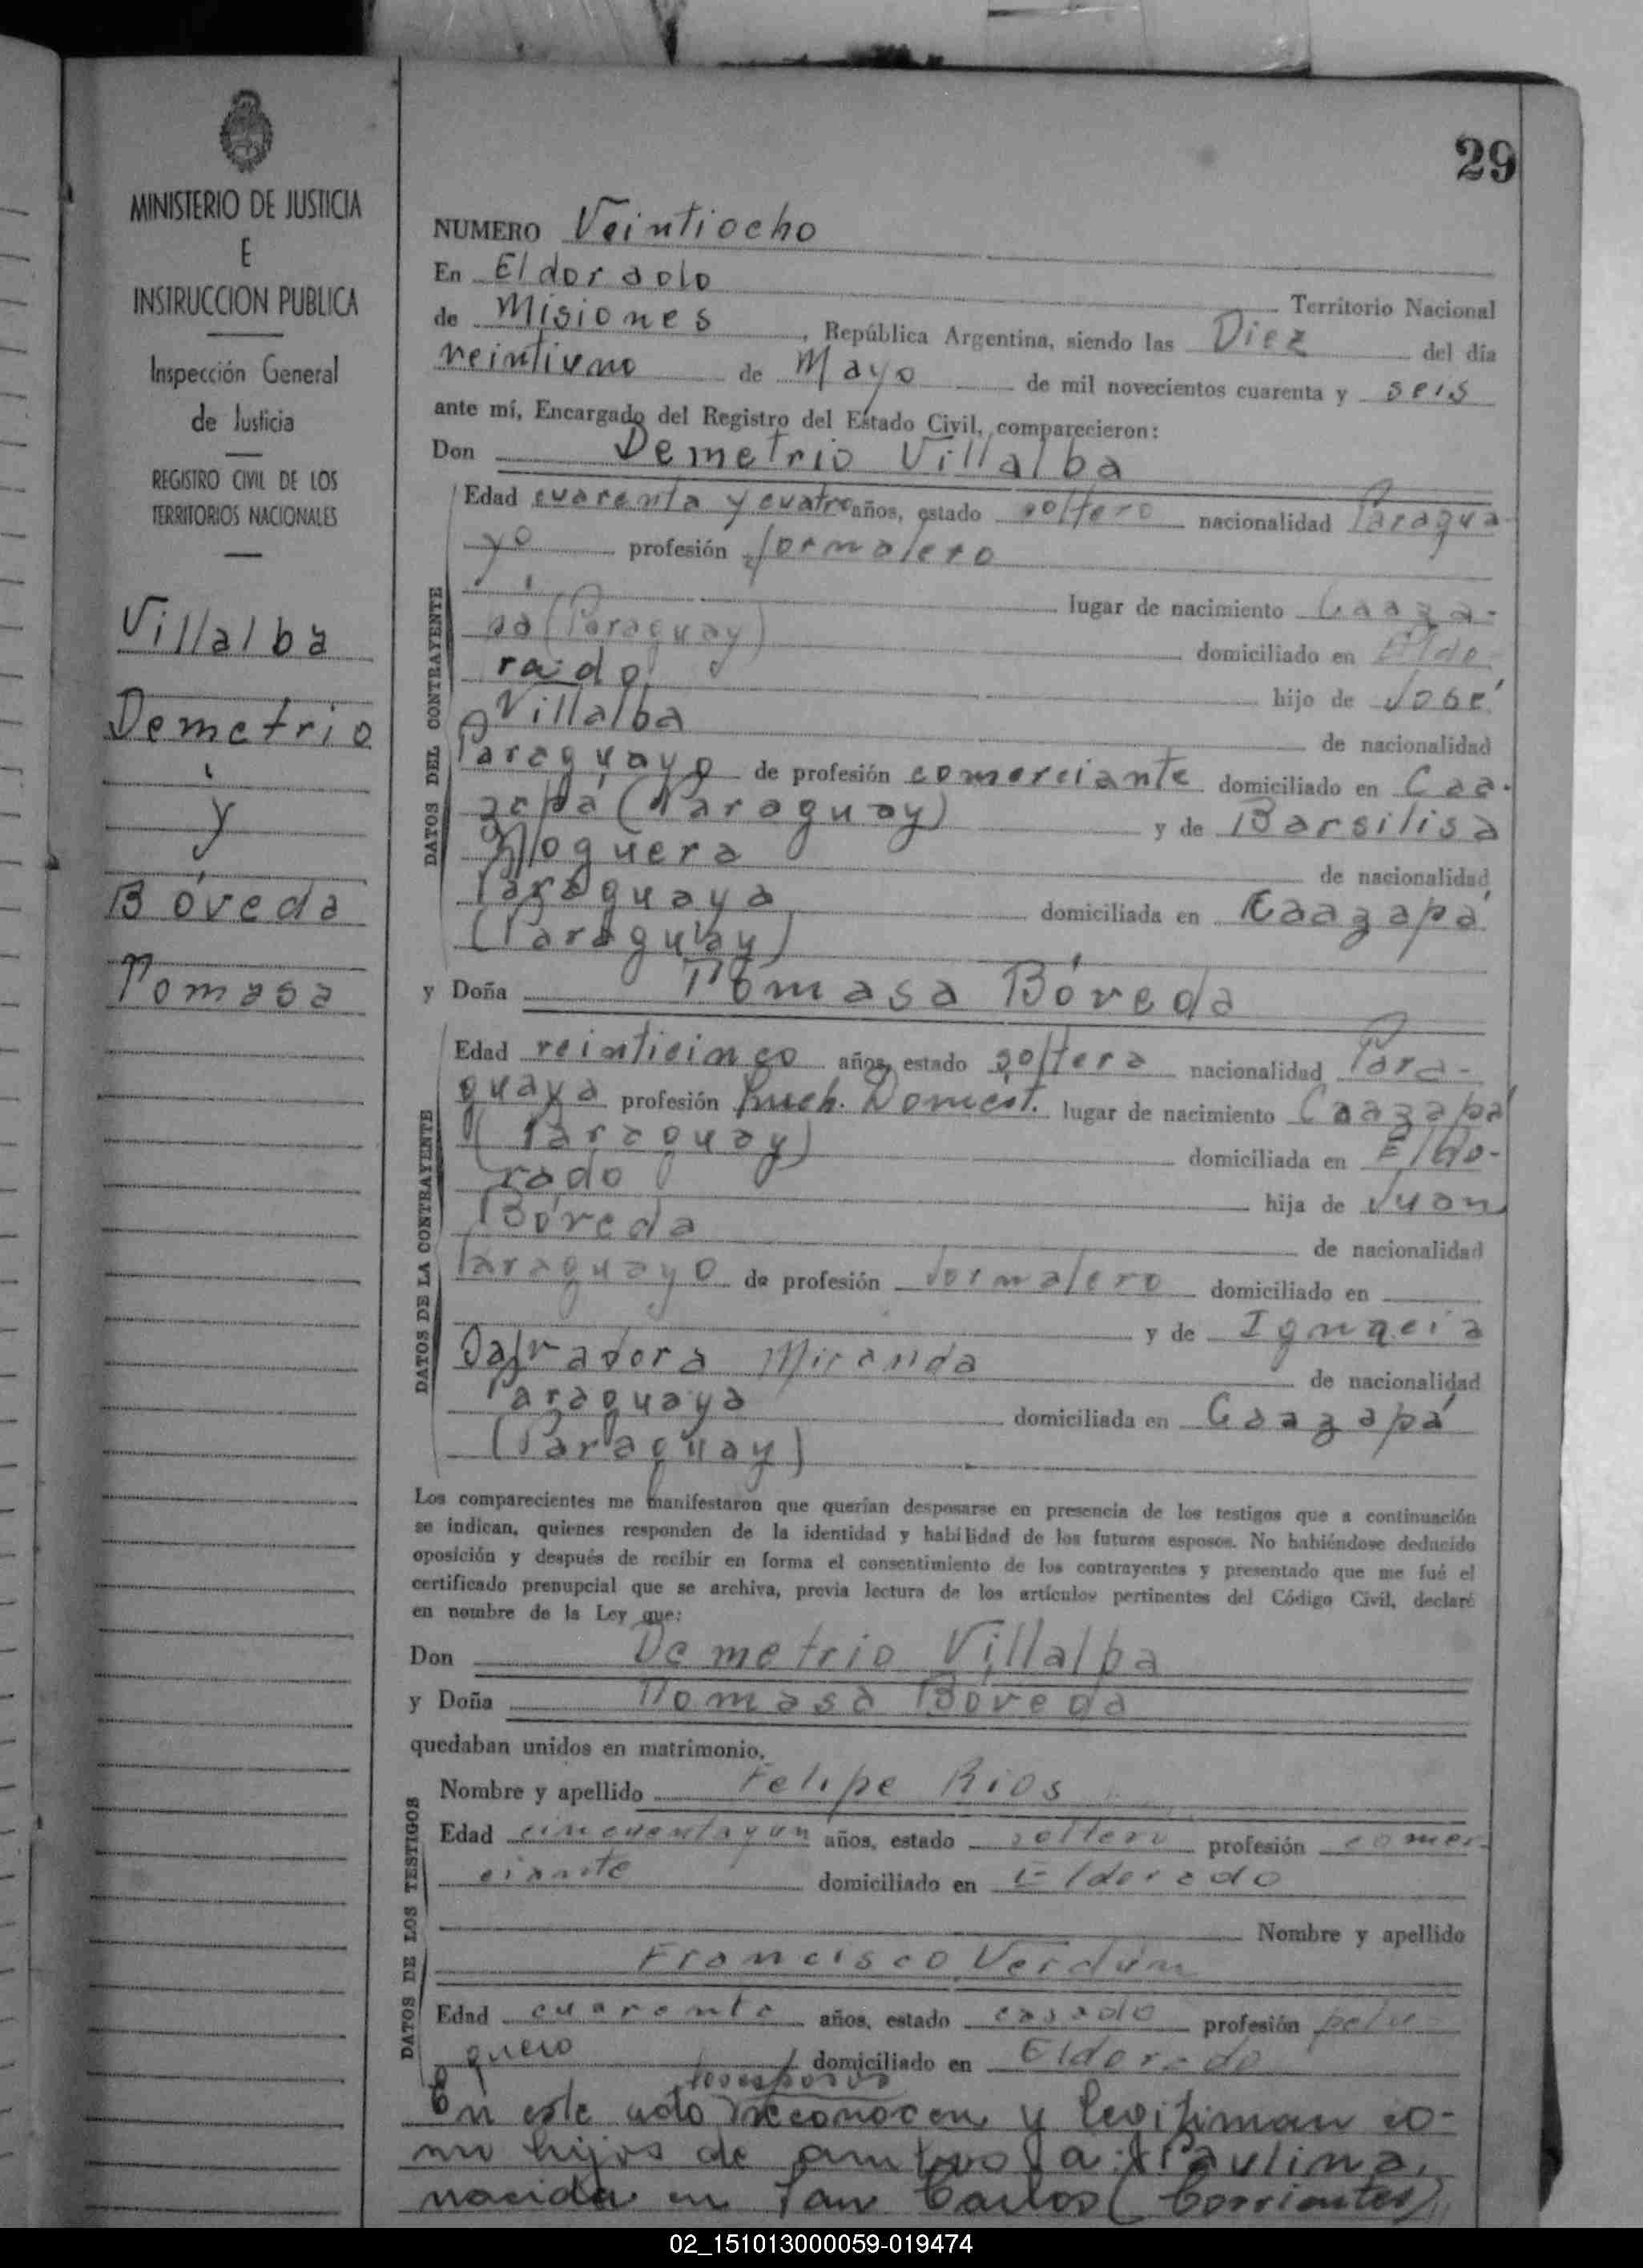 29
MINISTERIO DE JUSTICIA
E
INSTRUCCION PUBLICA
Inspección General
de Justicia
REGISTRO CIVIL DE LOS
TERRITORIOS NACIONALES
Villalba
Demetrio
y
Bóveda
Tomasa
NUMERO Veintiocho
En Eldorado Territorio Nacional
de Misiones, República Argentina, siendo las Diez del día
veintiuno de Mayo de mil novecientos cuarenta y seis
ante mí, Encargado del Registro del Estado Civil, comparecieron:
Don Demetrio Villalba
DATOS DEL CONTRAYENTE
Edad cuarenta y cuatro años, estado soltero nacionalidad Paragua-
yo profesión Jornalero
lugar de nacimiento Caaza-
pá (Paraguay) domiciliado en Eldo
rado hijo de José
Villalba de nacionalidad
Paraguayo de profesión comerciante domiciliado en Caa-
zapá (Paraguay) y de Barsilisa
Noguera de nacionalidad
Paraguaya domiciliada en Caazapá
(Paraguay)
y Doña Tomasa Bóveda
DATOS DE LA CONTRAYENTE
Edad veinticinco años, estado soltera nacionalidad Para-
guaya profesión Domést. lugar de nacimiento Caazapá
(Paraguay) domiciliada en Eldo-
rado hija de Juan
Bóveda de nacionalidad
Paraguayo de profesión Jornalero domiciliado en
y de Ignacia
Salvadora Miranda de nacionalidad
Paraguaya domiciliada en Caazapá
(Paraguay)
Los comparecientes me manifestaron que querían desposarse en presencia de los testigos que a continuación
se indican, quienes responden de la identidad y habilidad de los futuros esposos. No habiéndose deducido
oposición y después de recibir en forma el consentimiento de los contrayentes y presentado que me fué el
certificado prenupcial que se archiva, previa lectura de los artículos pertinentes del Código Civil, declaré
en nombre de la Ley que:
Don Demetrio Villalba
y Doña Tomasa Bóveda
quedaban unidos en matrimonio.
DATOS DE LOS TESTIGOS
Nombre y apellido Felipe Rios
Edad cincuenta y un años, estado soltero profesión comer-
ciante domiciliado en Eldorado
Nombre y apellido
Francisco Verdún
Edad cuarenta años, estado casado profesión pelu-
quero domiciliado en Eldorado
los esposos
En este acto reconocen y legitiman co-
mo hijos de ambos a: Paulina,
nacida en San Carlos (Corrientes)
02_151013000059-019474